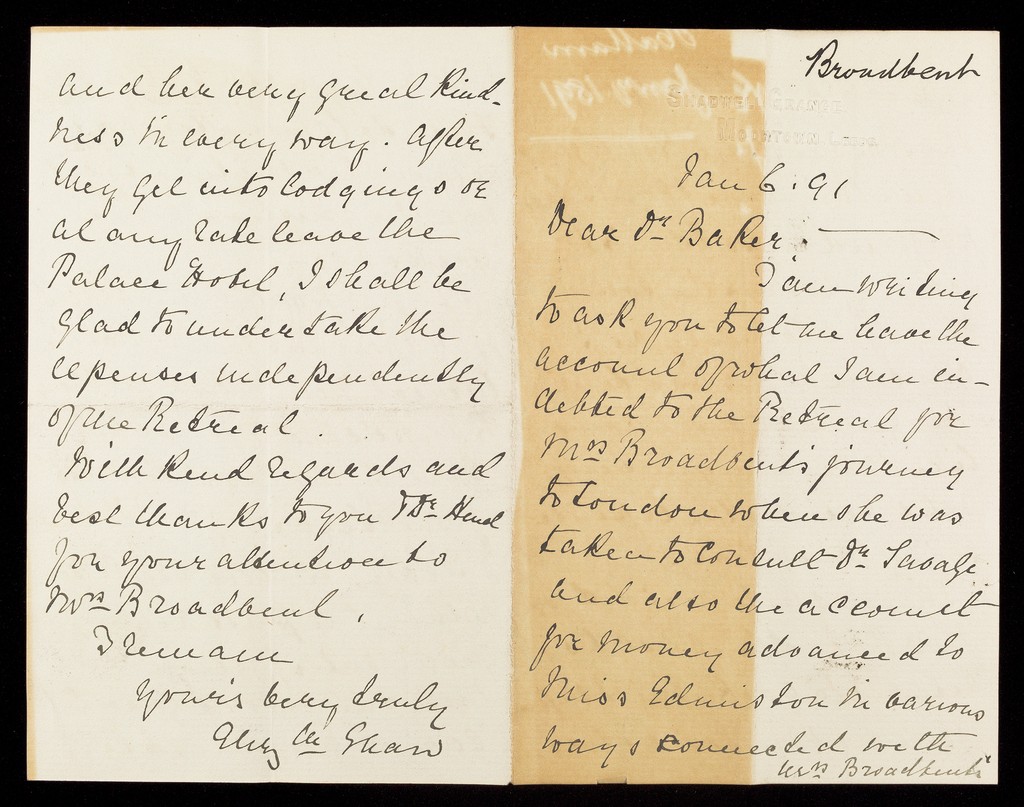 Broadbent
Jan 6. 91
Dear Dr Baker.
I am writing
to ask you to let me have the
account of what I am in-
debted to the Retreat for
Mrs Broadbent's journey
to London when she was
taken to consult Dr Savage
and also the account
for money advanced to
Miss Edmiston in various
ways connected with
Mrs Broadbent's
and her very great kind-
ness in every way. After
they get into lodgings or
at any rate leave the
Palace Hotel, I shall be
glad to undertake the
expenses independently
of the Retreat.
With kind regards and
best thanks to you & Dr
for your attention to
Mrs Broadbent,
I remain
Yours very truly
Elizth Shaw